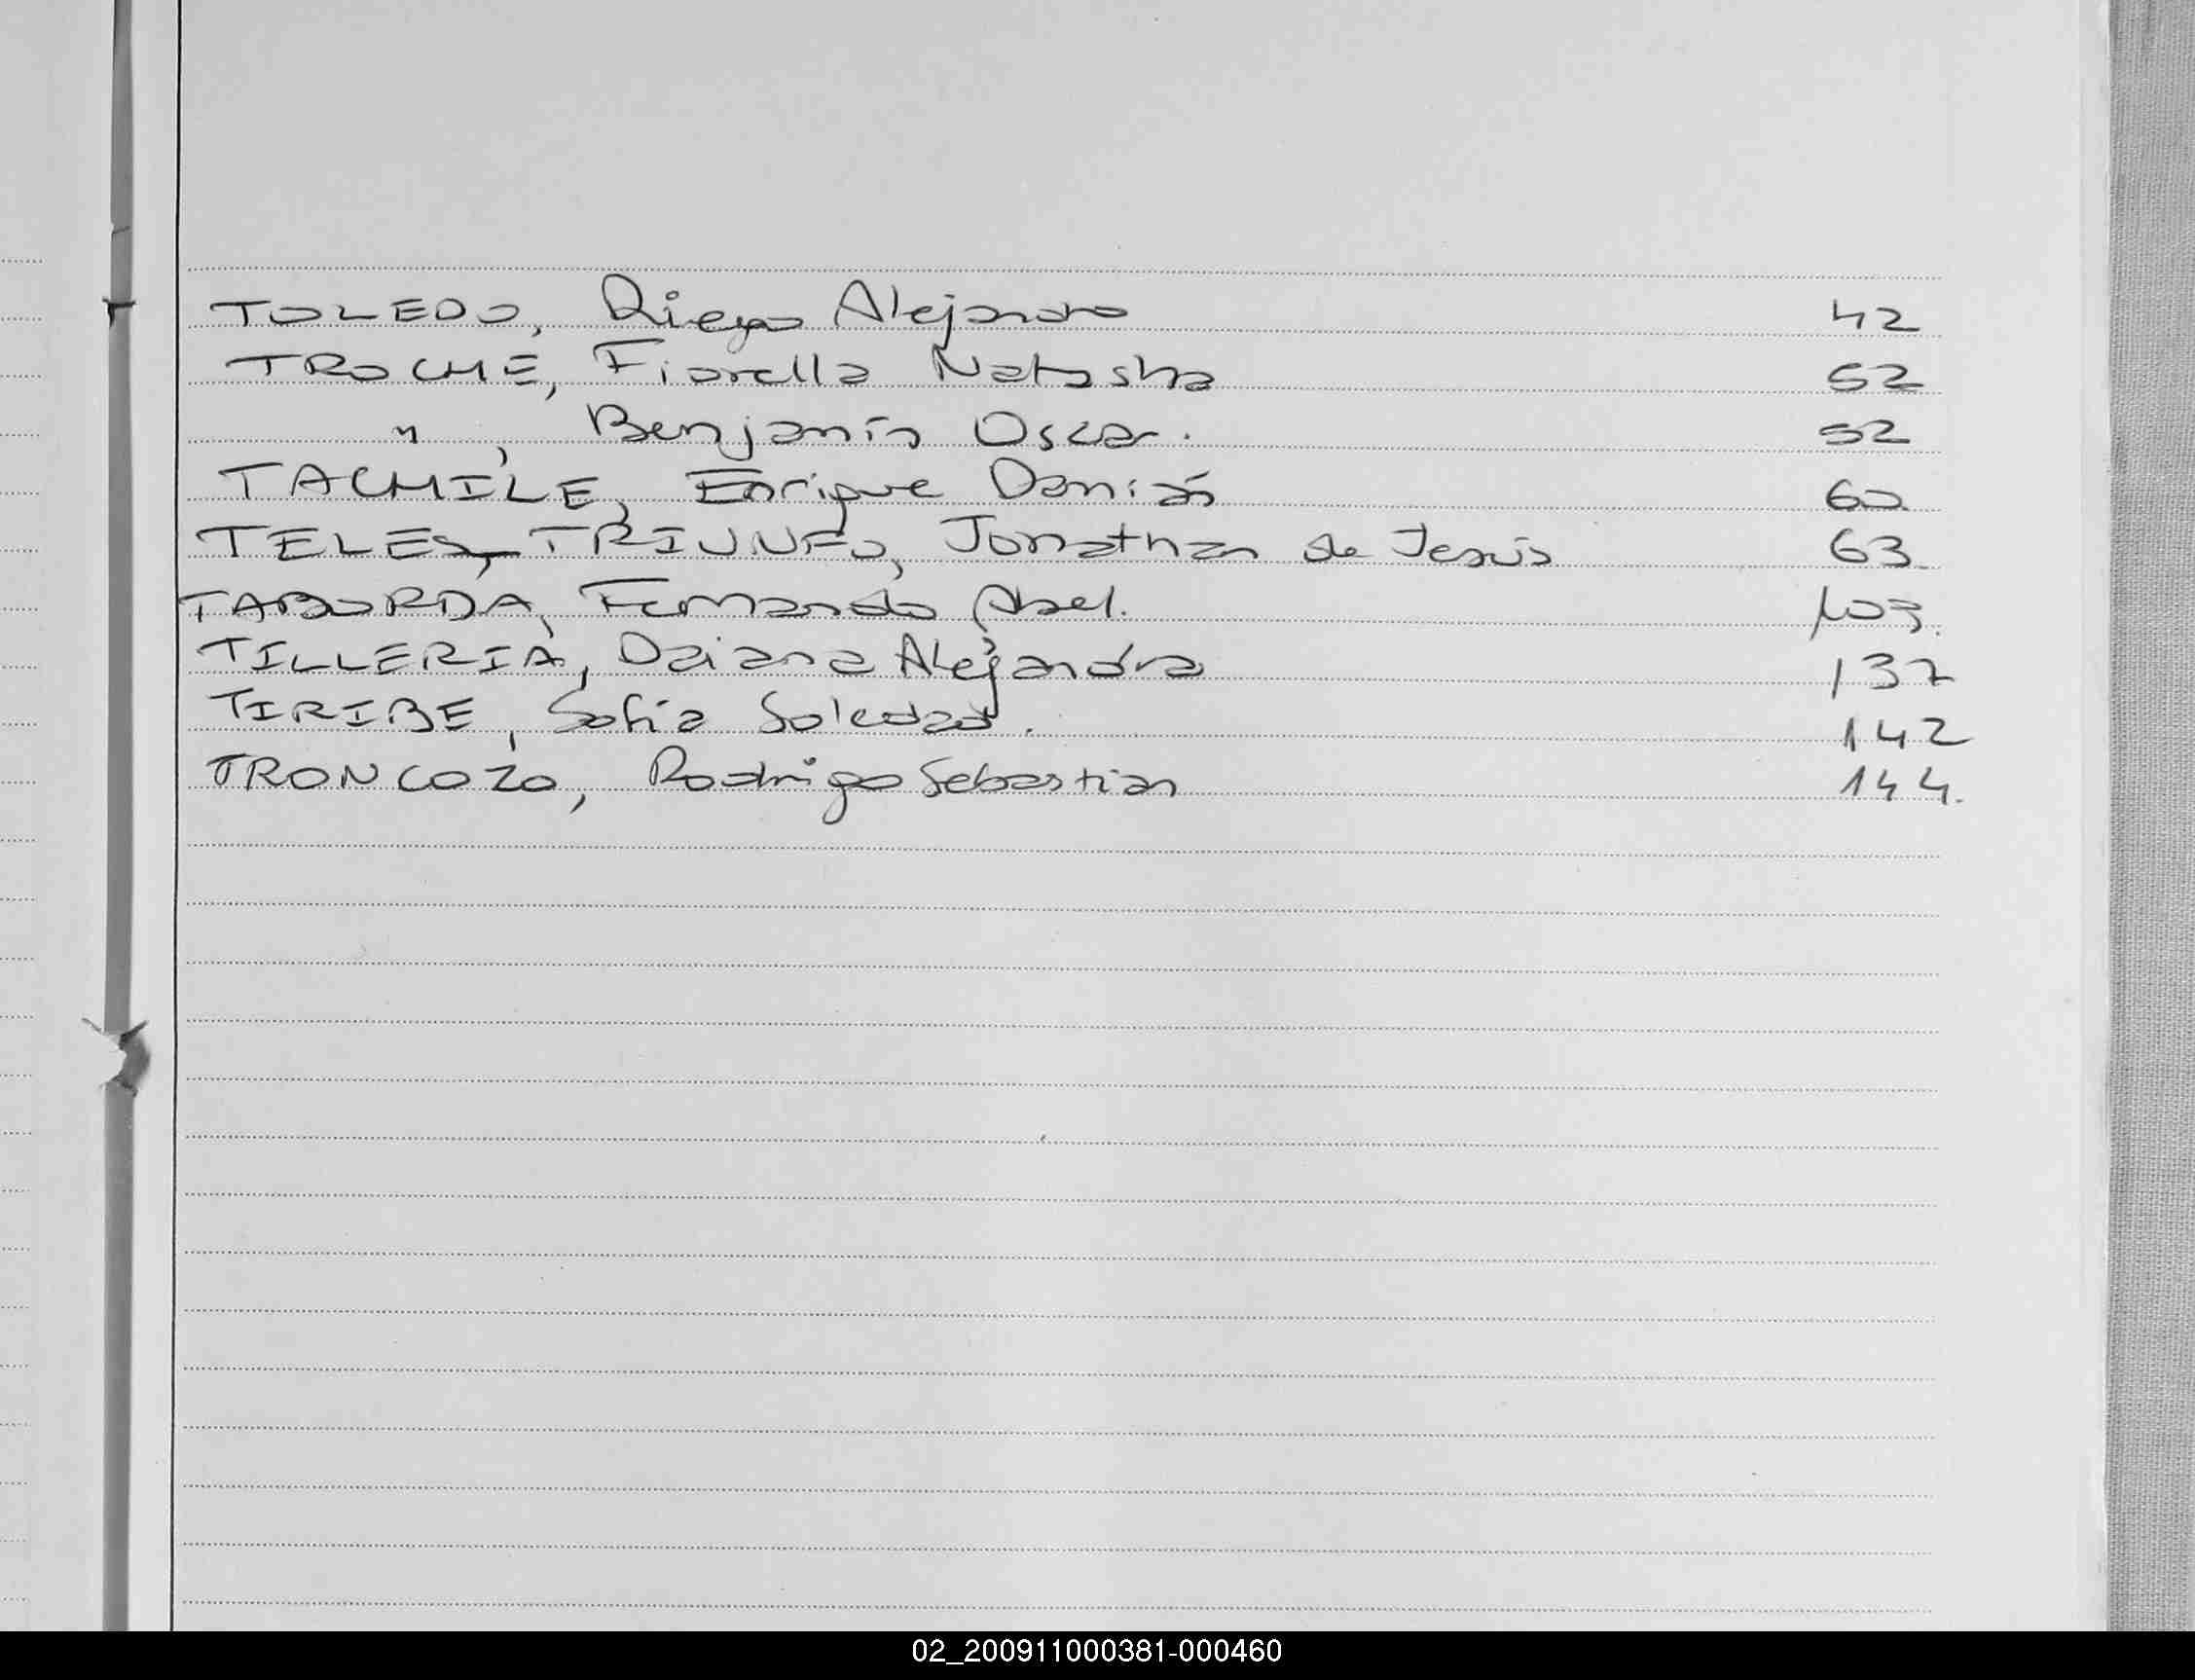 TOLEDO, Diego Alejandro 42
TROCHE, Fiorella Natasha 52
" , Benjamín Oscar. 52
TACHILE, Enrique Damián 60
TELES TRIUNFO, Jonathan de Jesús 63
TABORDA, Fernando Abel. 103.
TILLERIA, Daiana Alejandra 137
TIRIBE, Sofia Soledad. 142
TRONCOZO, Rodrigo Sebastian 144.
02_200911000381-000460